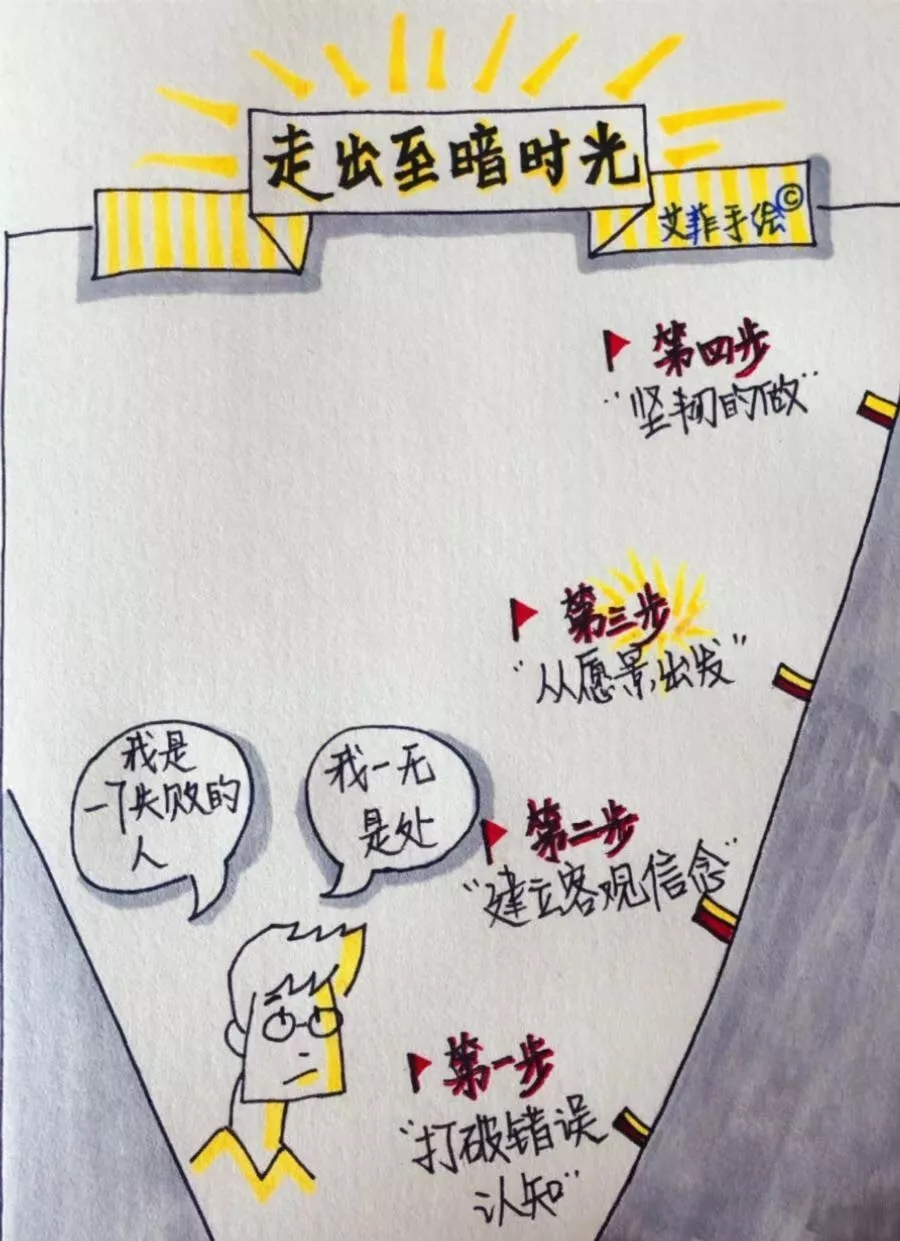 走出至暗时光
艾菲手绘©
第四步
"坚韧的做"
第三步
"从愿景出发"
我是
一个失败的
人
我一无
是处
第二步
"建立客观信念"
第一步
"打破错误
认知"